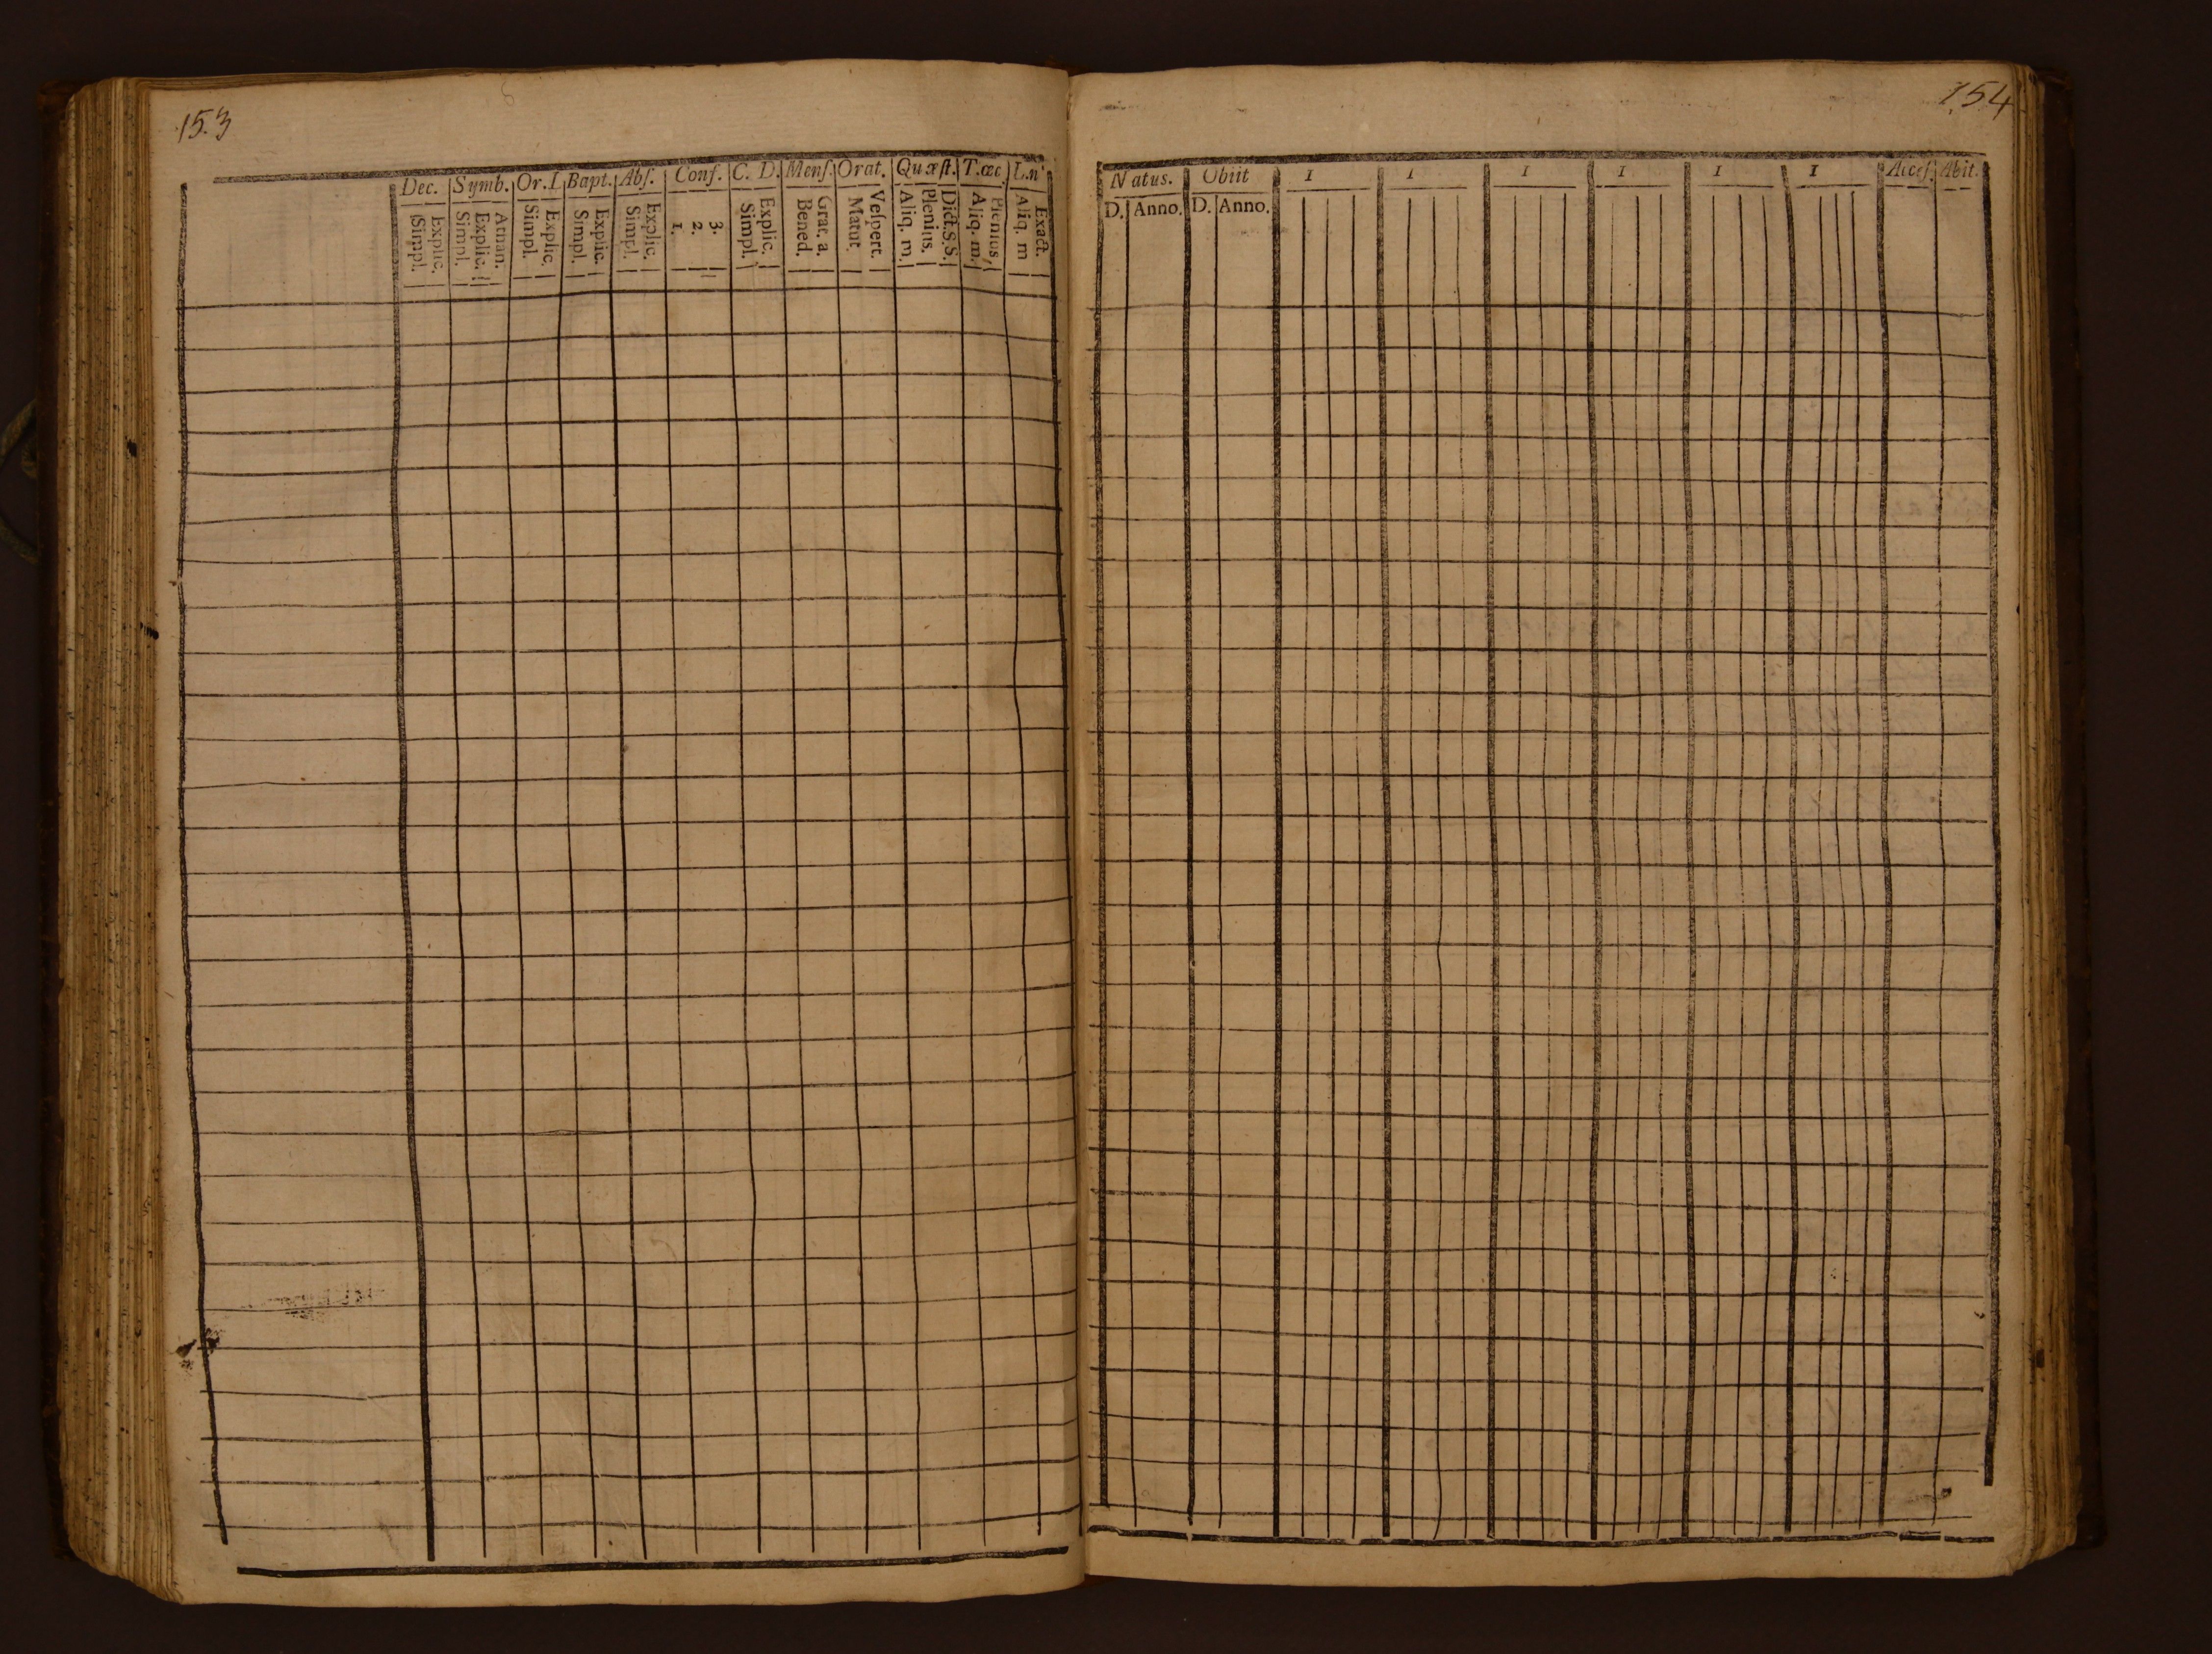 153
Dec. Symb. Or. L Bapt. Abſ. Conf. C. D. Menſ. Orat. Quæſt. T. œc L.n
Simpl. Explic. Simpl. Explic. Athan. Simpl. Explic. Simpl. Explic. Simpl. Explic. 1. 2. 3. Simpl. Explic. Bened. Grat. a. Matut. Veſpert. Aliq. m. Plenius. Dict. S.S. Aliq. m. Plenius, Aliq. m Exact.
154
Natus. Obiit I I I I I I Acceſ. Abit.
D. Anno. D. Anno.